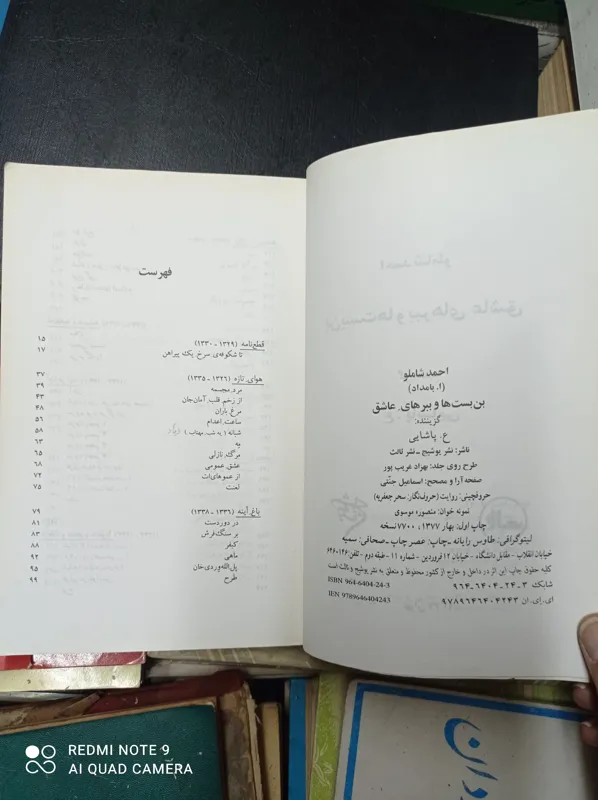 احمد شاملو
(ا. بامداد)
بن‌بست‌ها و ببرهای عاشق
گزیننده:
ع. پاشایی
ناشر: نشر یوشیج ـ نشر ثالث
طرح روی جلد: بهزاد غریب پور
صفحه آرا و مصحح: اسماعیل جنتی
حروفچینی: روایت (حروف‌نگار: سحر جعفریه)
نمونه خوان: منصوره موسوی
چاپ اول: بهار ۱۳۷۷، ۷۷۰۰ نسخه
لیتوگرافی: طاوس رایانه ـ چاپ: عصر چاپ ـ صحافی: سمیه
خیابان انقلاب ـ مقابل دانشگاه ـ خیابان ۱۲ فروردین ـ شماره ۱۱ ـ طبقه دوم ـ تلفن: ۶۴۶۰۱۴۶
کلیه حقوق چاپ این اثر در داخل و خارج از کشور محفوظ و متعلق به نشر یوشیج و ثالث است
ISBN 964-6404-24-3 شابک ۳ـ۲۴ـ۶۴۰۴ـ۹۶۴
IEN 9789646404243 ای.ای.ان ۹۷۸۹۶۴۶۴۰۴۲۴۳
فهرست
قطع‌نامه (۱۳۲۹-۱۳۳۰) ۱۵
تا شکوفه‌ی سرخ یک پیراهن ۱۷
هوای تازه (۱۳۲۶-۱۳۳۵) ۳۷
مرد مجسمه ۳۹
از زخم قلب آمان‌جان ۴۳
مرغ باران ۴۸
ساعت اعدام ۵۶
شبانه (یه شب مهتاب) ۵۸
به ۶۳
مرگ نازلی ۶۵
عشق عمومی ۶۸
از عموهای‌ات ۷۲
لعنت ۷۵
باغ آینه (۱۳۳۶-۱۳۳۸) ۷۹
در دوردست ۸۱
بر سنگ‌فرش ۸۳
کیفر ۸۸
ماهی ۹۲
پل‌الله‌وردی‌خان ۹۵
طرح ۹۹
REDMI NOTE 9
AI QUAD CAMERA